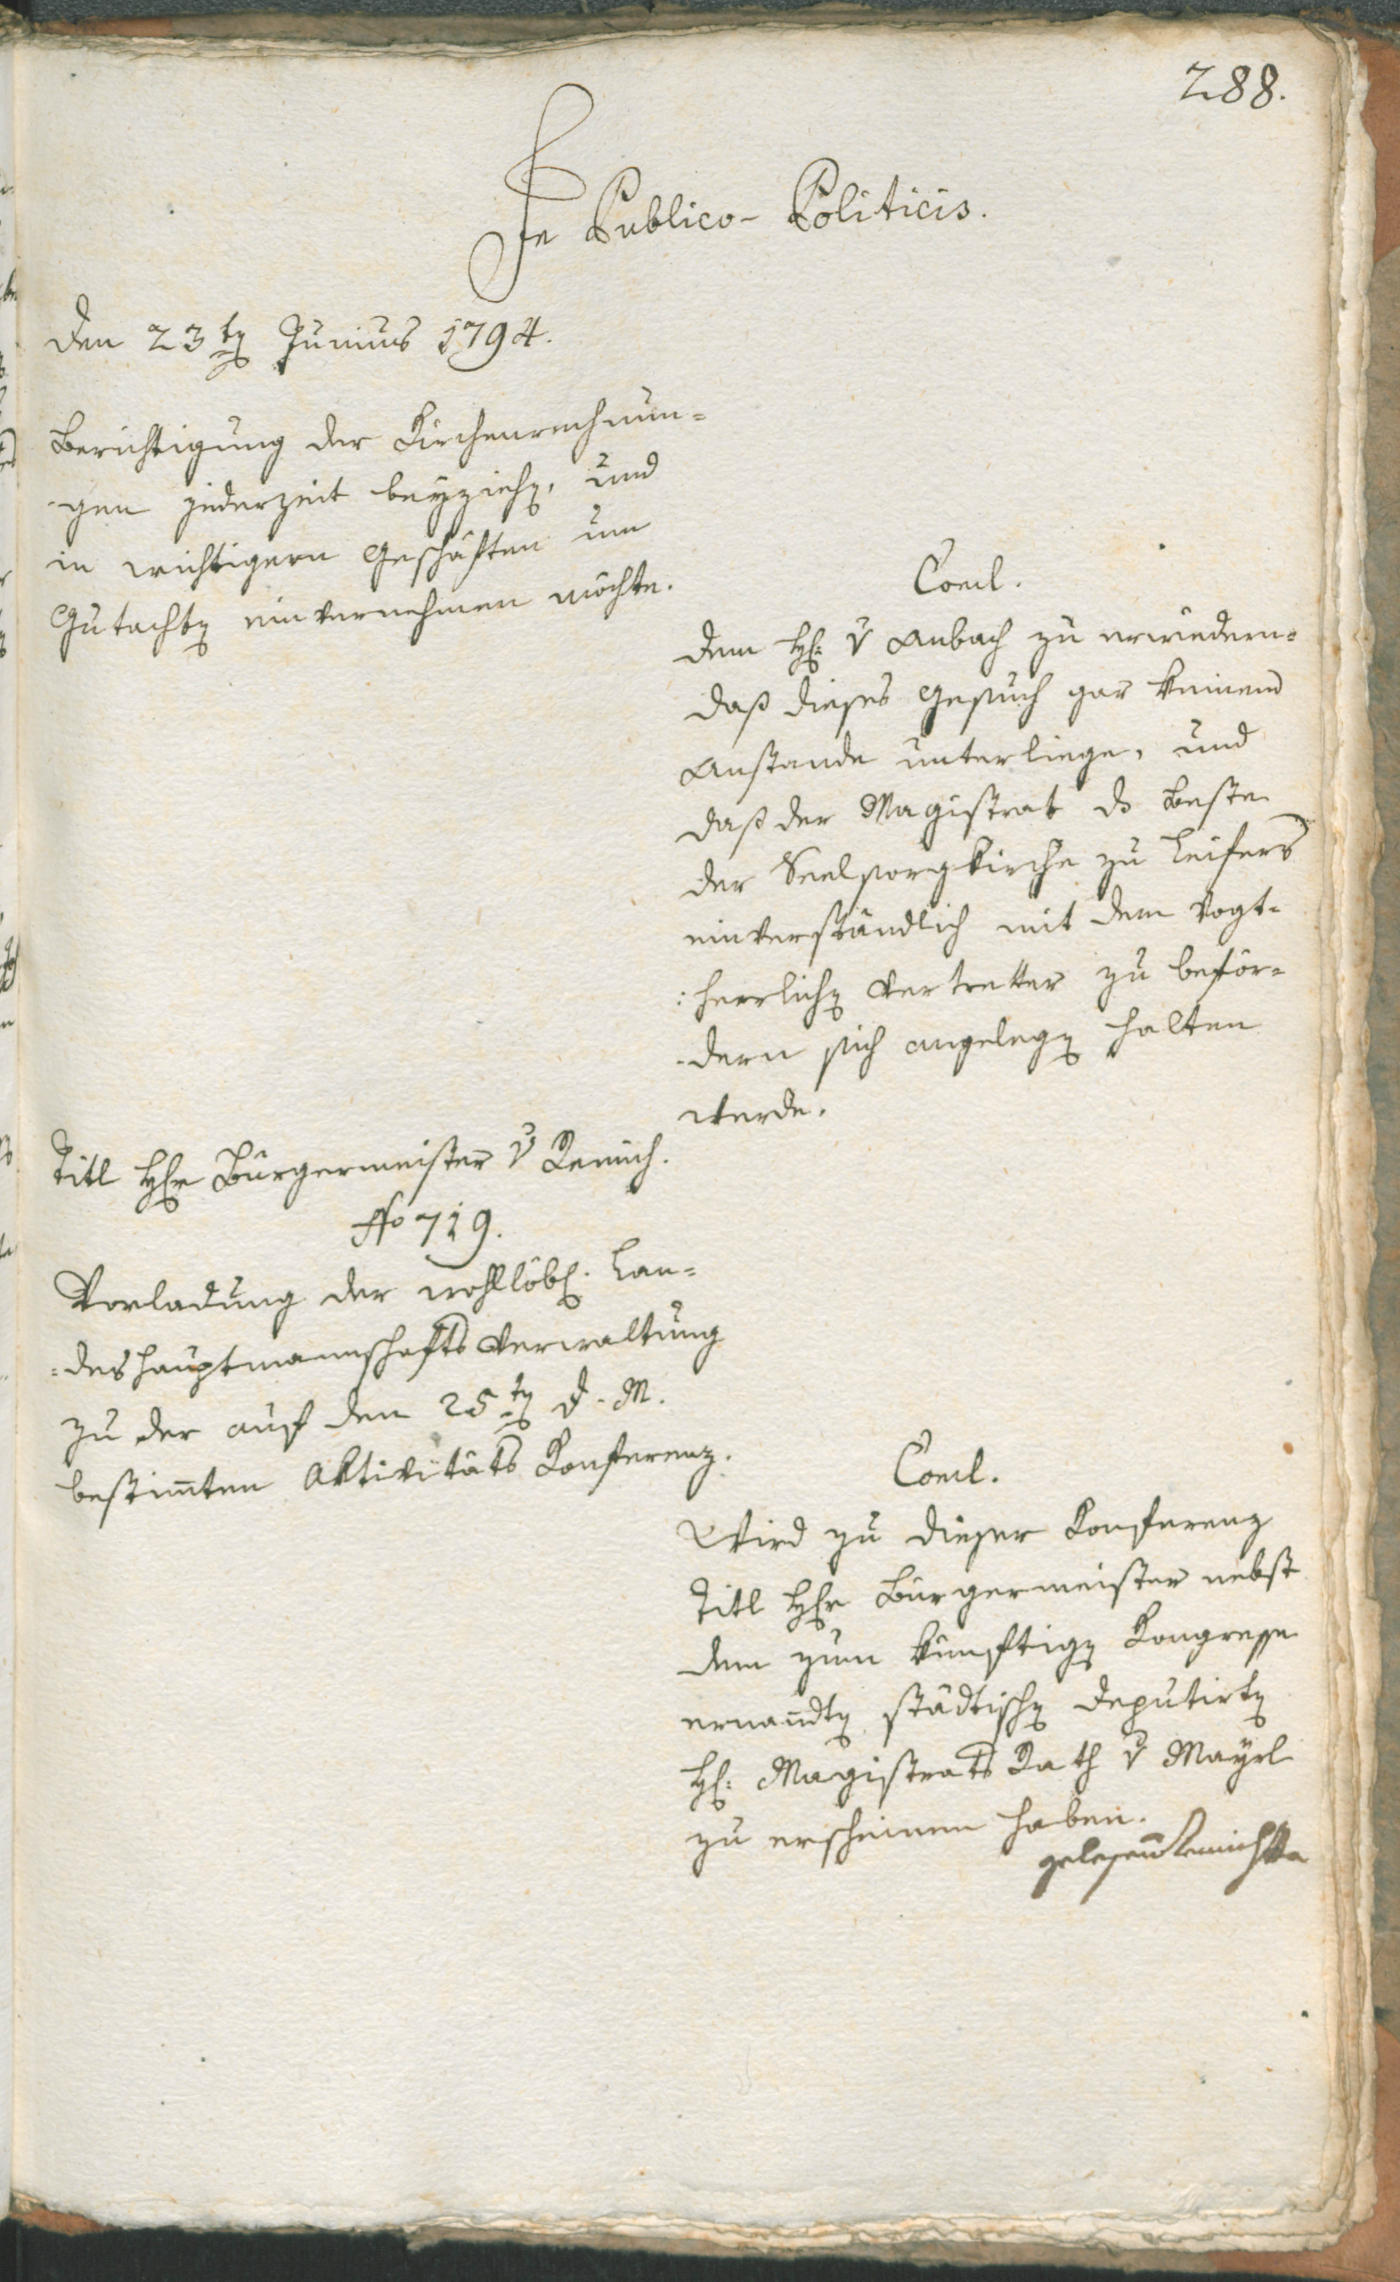 288.
In Publico-Politicis.
den 23ten Junius 1794.
Berichtigung der Kirchenrechnun-
-gen jederzeit beyziehen, und
in wichtigern Geschäften um
Gutachten einvernehmen möchte.
Concl.
dem H: v Aubach zu erwiedern:
daß dieses Gesuch gar keinem
Anstande unterliege, und
daß der Magistrat ds Beste
der Seelsorgkirche zu Leifers
einverständlich mit dem Vogt-
:herrlichen Vertretter zu beför-
-dern sich angelegen halten
werde.
Titl Hr Bürgermeister v Remich.
No 719.
Vorladung der wohllöbl. Lan-
-deshauptmannschafts Verwaltung
zu der auf den 25ten d. M.
bestimten Aktivitäts Konferenz.
Concl.
Wird zu dieser Konferenz
Titl Hr Bürgermeister nebst
dem zum künftigen Kongresse
ernandten städtischen deputirten
H: Magistrats Rath v Mayrl
zu erscheinen haben.
gelesen Remich